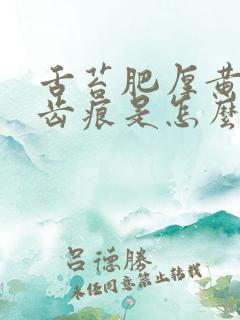 舌苔肥厚黄
齿痕是怎麽
吕德勝
未经同意禁止转载